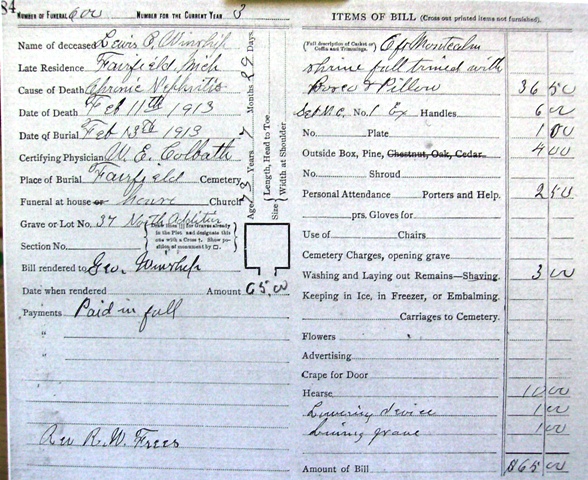 84
NUMBER OF FUNERAL 600 NUMBER FOR THE CURRENT YEAR 3
Name of deceased Lewis P. Winship
Late Residence Fairfield, Mich
Cause of Death Chronic Nephritis
Date of Death Feb 11th 1913
Date of Burial Feb 13th 1913
Certifying Physician W. E. Colbath
Place of Burial Fairfield Cemetery
Funeral at house or Church
Grave or Lot No. 37 North Addition
Section No.
(Draw lines for Graves already in the Plot and designate this one with a Cross †. Show position of monument by □.)
Bill rendered to Geo. Winship
Date when rendered Amount 65.00
Payments Paid in full
"
"
"
"
Rev R. W. Frees
Age 73 Years 7 Months 29 Days.
Size { Length, Head to Toe
Width at Shoulder
ITEMS OF BILL (Cross out printed items not furnished).
(Full description of Casket or Coffin and Trimmings.) Off Montcalm
shrine full trimed with
& Pillow 36 50
Set No. 1 Ex Handles 6 00
No. Plate 1 00
Outside Box, Pine, Chestnut, Oak, Cedar 4 00
No. Shroud
Personal Attendance Porters and Help. 2 50
prs. Gloves for
Use of Chairs
Cemetery Charges, opening grave
Washing and Laying out Remains—Shaving. 3 00
Keeping in Ice, in Freezer, or Embalming.
Carriages to Cemetery.
Flowers
Advertising
Crape for Door
Hearse 10 00
Lowering device 1 00
Lining grave 1 00
Amount of Bill $65 00